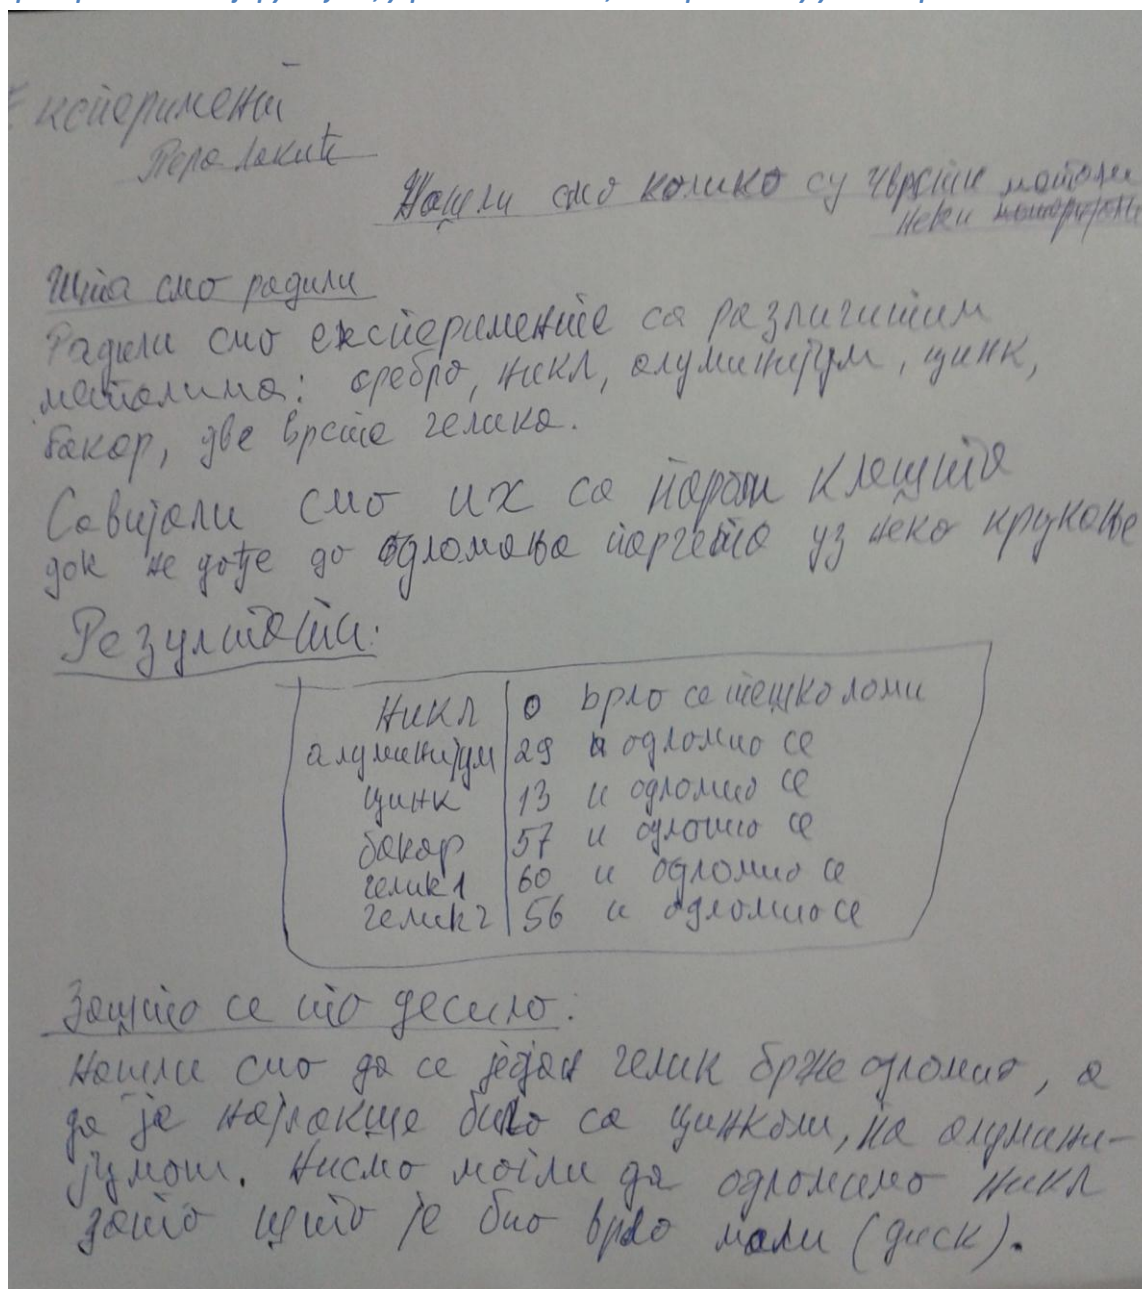 Експеримент
Пера Лакић
Нашли смо колико су чврсти
неки
Шта смо радили
Радили смо експерименте са различитим
металима: сребро, никл, алуминијум, цинк,
бакар, две врсте челика.
Савијали смо их са паром клешта
док не дође до одломања парчета уз неко
Резултати:
никл 0 врло се тешко ломи
алуминијум 29 и одломио се
цинк 13 и одломио се
бакар 57 и одломио се
челик 1 60 и одломио се
челик 2 56 и одломио се
Зашто се то десило:
Нашли смо да се један челик брже одломио, а
да је најлакше било са цинком, па алумини-
јумом. Нисмо могли да одломимо никл
зато што је био врло мали (диск).